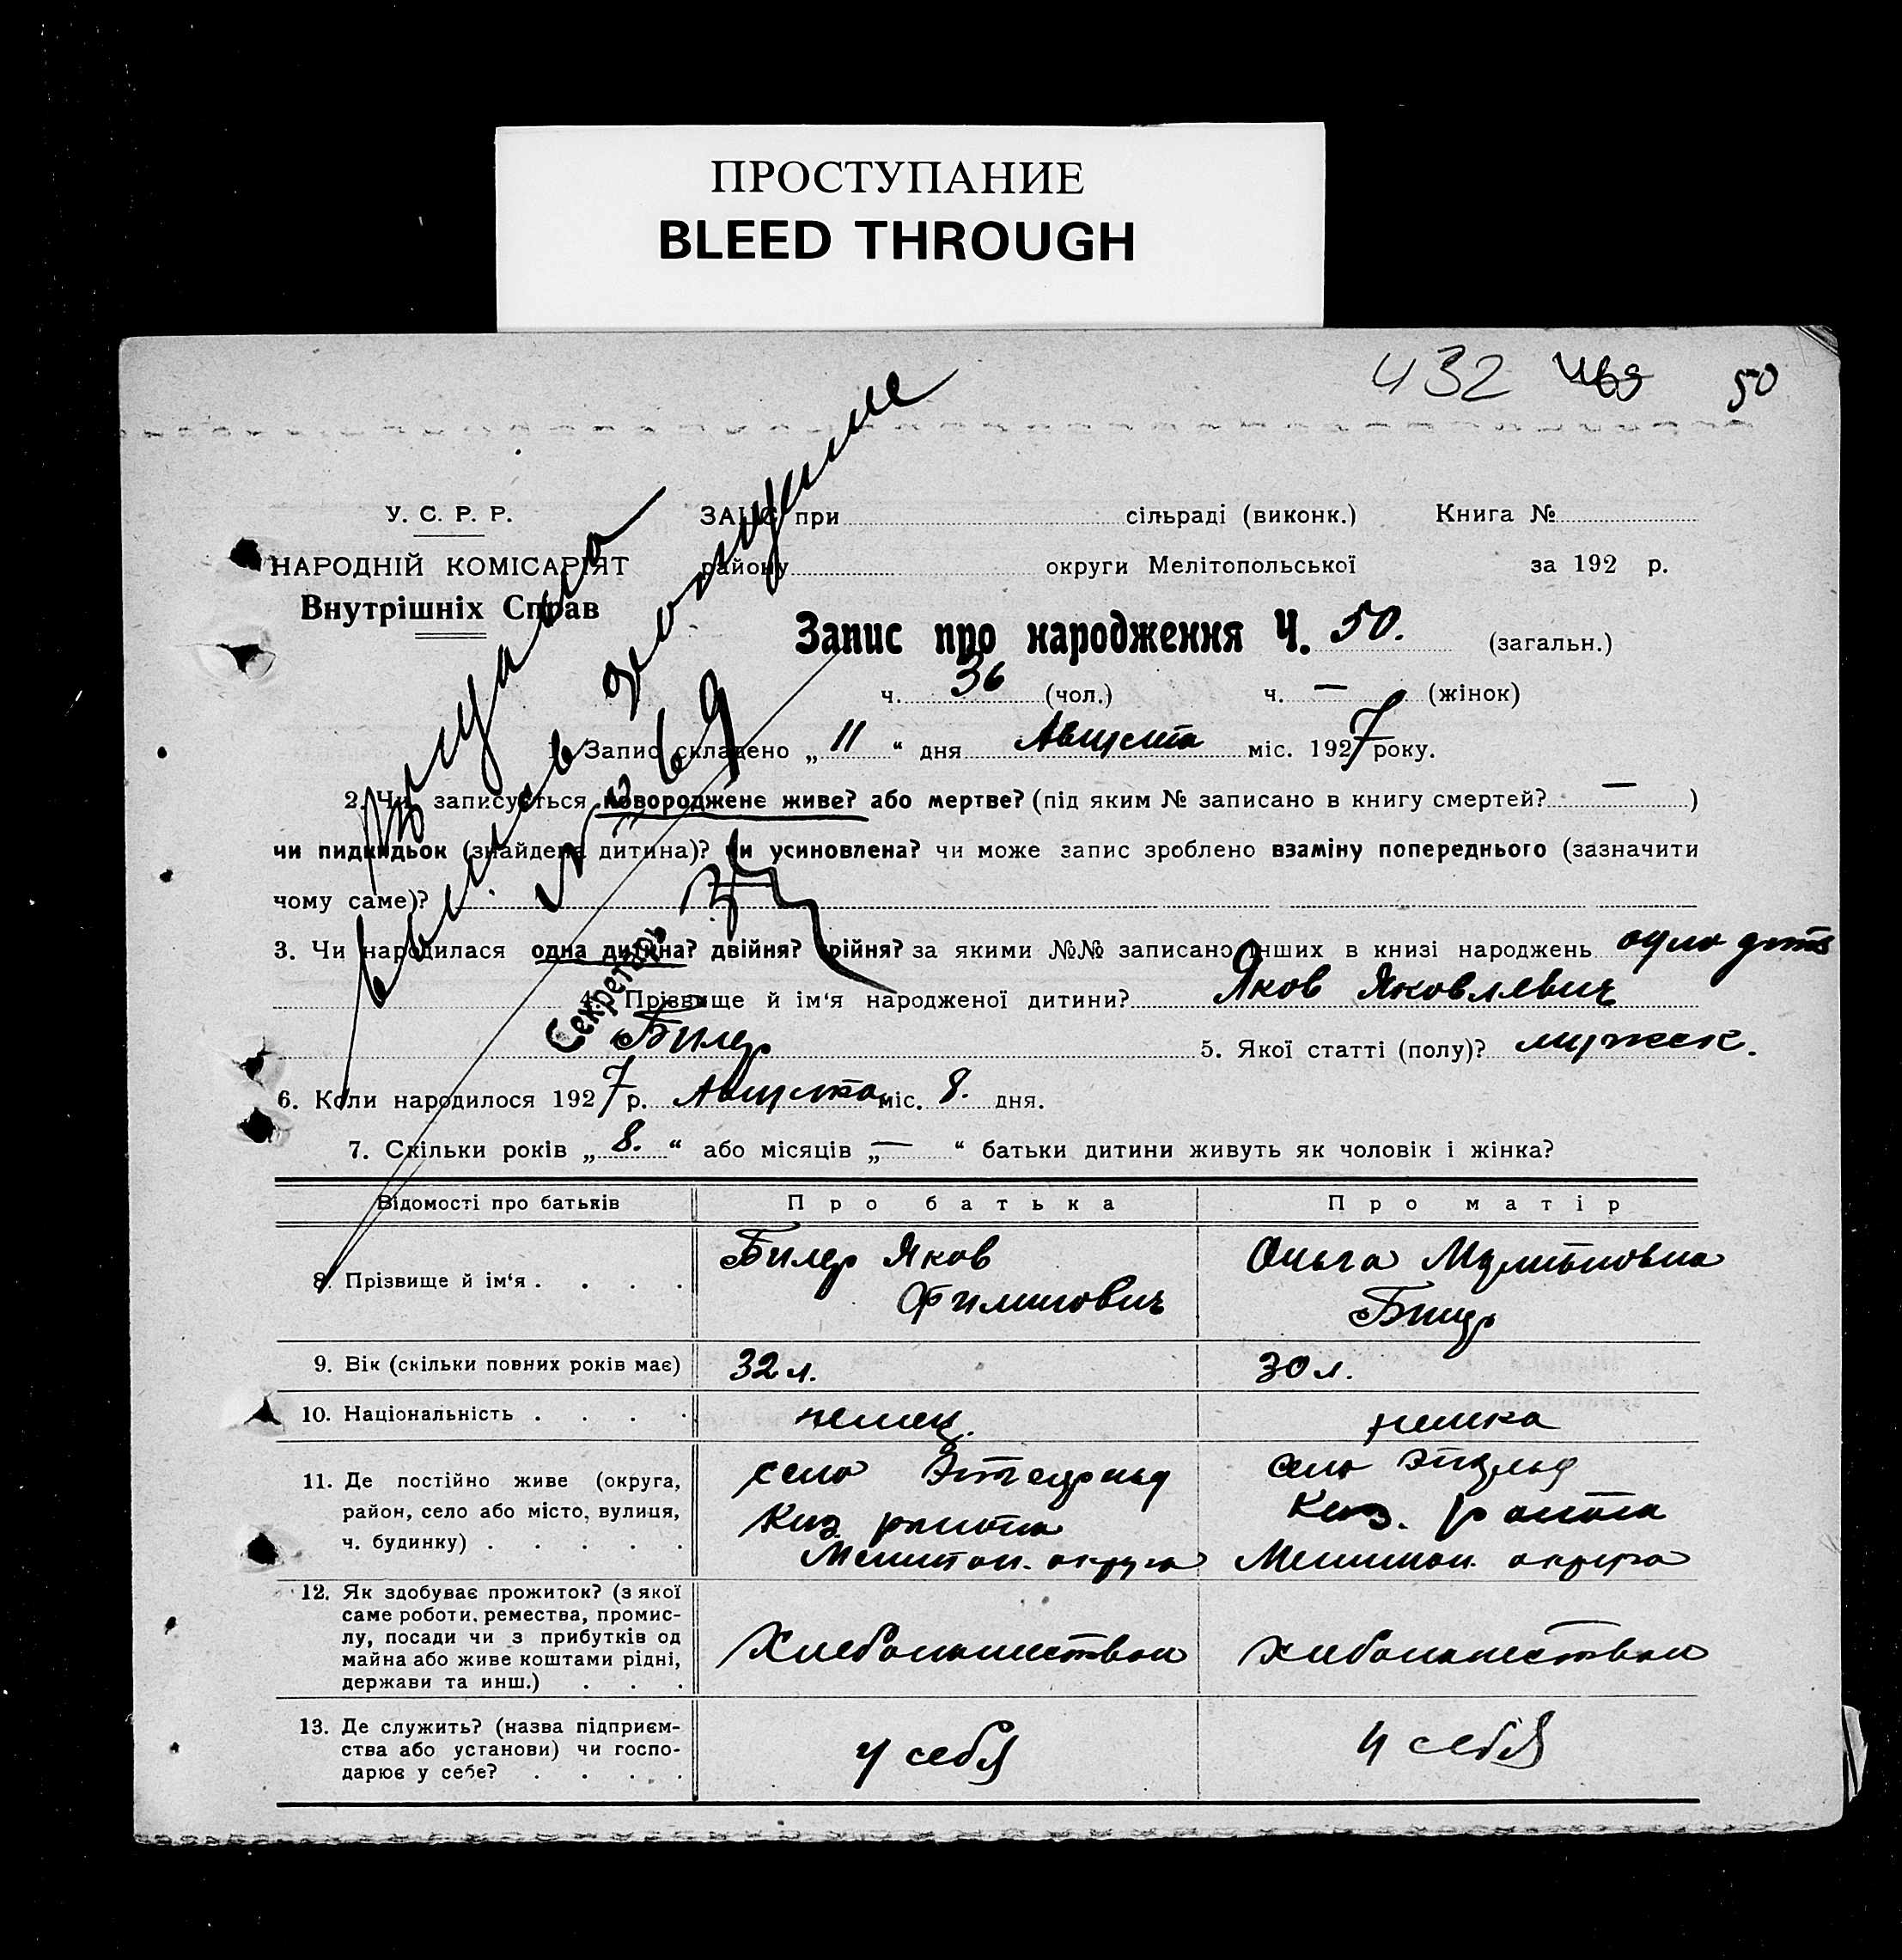 ПРОСТУПАНИЕ
BLEED THROUGH
432 50
У. С. Р. Р.
НАРОДНІЙ КОМІСАРІЯТ
Внутрішніх Справ
ЗАЦС при сільраді (виконк.) Книга №
району округи Мелітопольської за 192 р.
Запис про народження Ч. 50. (загальн.)
ч. 36 (чол.) ч. — (жінок)
1. Запис складено „ 11 “ дня Августа міс. 1927 року.
2. Чи записується новороджене живе? або мертве? (під яким № записано в книгу смертей? — )
чи пидкидьок (знайдена дитина)? чи усиновлена? чи може запис зроблено взаміну попереднього (зазначити
чому саме)?
3. Чи народилася одна дитина? двійня? трійня? за якими №№ записано інших в книзі народжень одно дитя
4. Прізвище й ім‘я народженої дитини? Яков Яковлевич
Билер 5. Якої статті (полу)? мужеск.
6. Коли народилося 1927 р. Августа міс. 8. дня.
7. Скільки років „ 8. “ або місяців „ — “ батьки дитини живуть як чоловік і жінка?
№ 69
Секретарь
Відомості про батьків Про батька Про матір
8. Прізвище й ім‘я . . . . Билер Яков Ольга
Филипович Билер
9. Вік (скільки повних років має) 32 л. 30 л.
10. Національність . . . . немец. немка
11. Де постійно живе (округа, село село
район, село або місто, вулиця, района района
ч. будинку) . . . . . Мелитоп. округа Мелитоп. округа
12. Як здобуває прожиток? (з якої
саме роботи, ремества, промис-
лу, посади чи з прибутків од Хлебопашеством хлебопашеством
майна або живе коштами рідні,
держави та инш.) . . .
13. Де служить? (назва підприєм-
ства або установи) чи госпо- у себя у себя
дарює у себе? . . . .